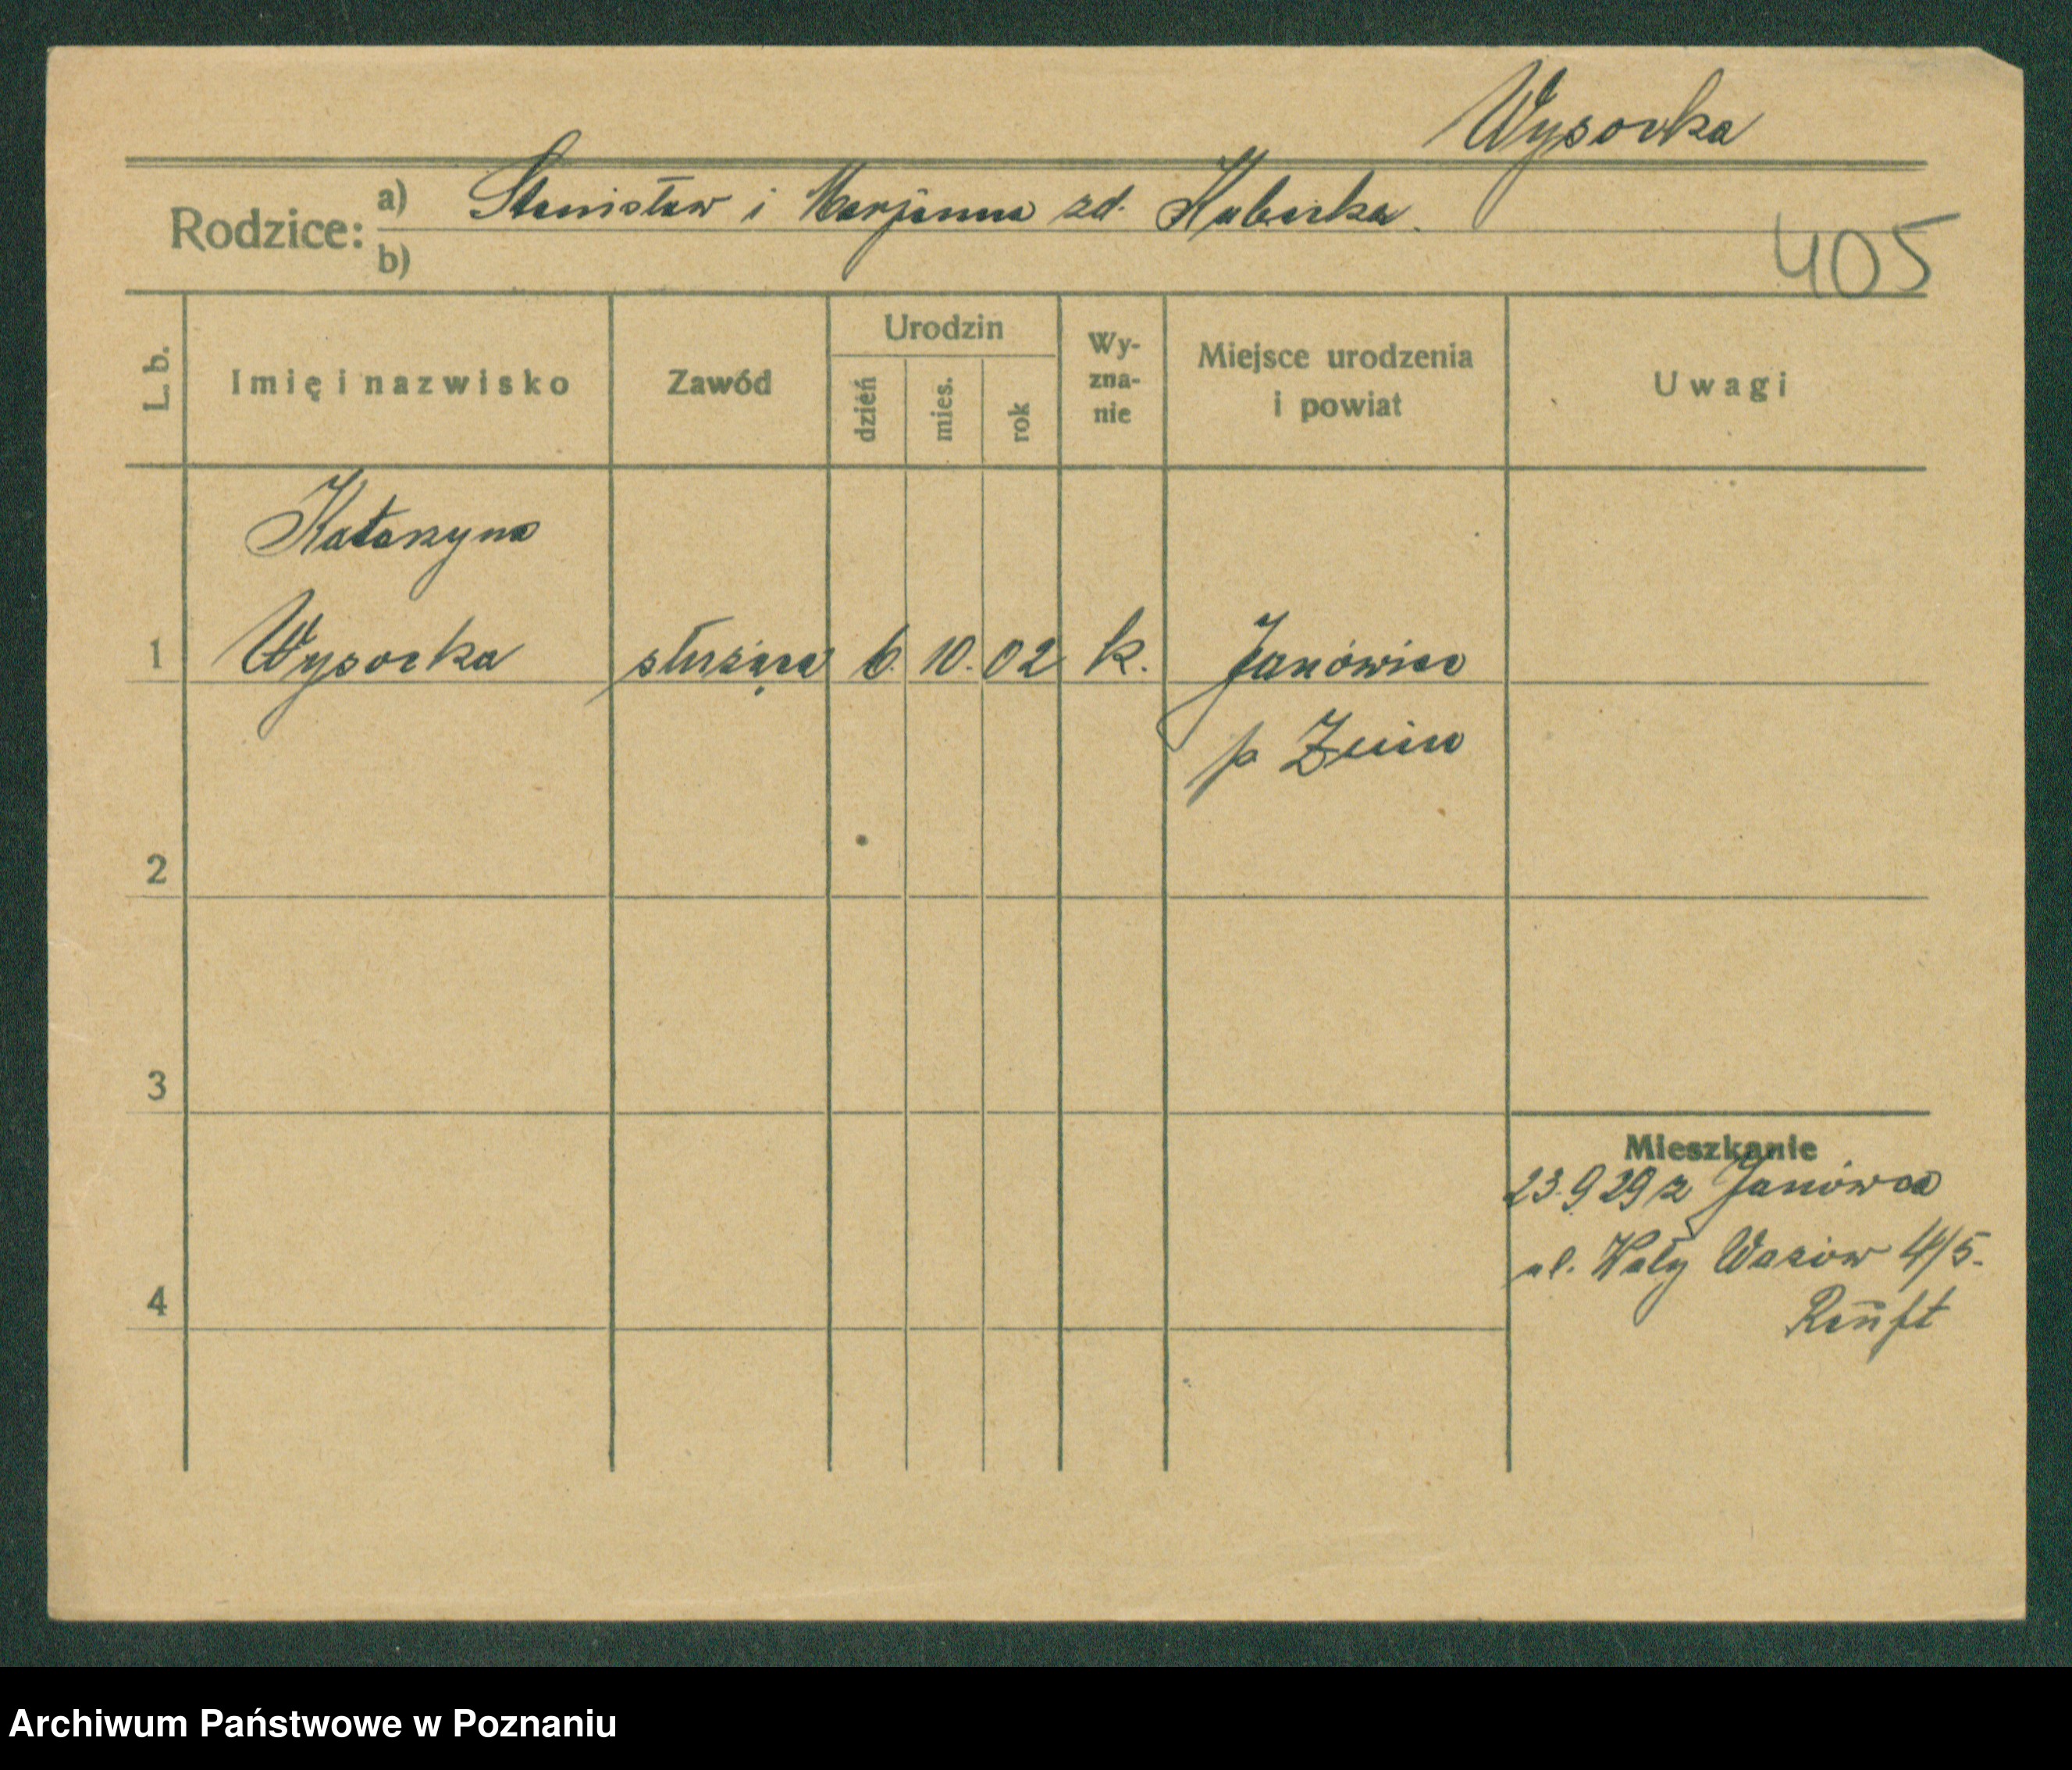 Wysocka
Rodzice: a) Stanisław i Marjanna zd. Kubacka.
b)
405
L. b. Imię i nazwisko Zawód Urodzin dzień mies. rok Wyznanie Miejsce urodzenia i powiat Uwagi
Katarzyna
1 Wysocka służąca 6. 10. 02 k. Janówiec
p Żnin
2
3
Mieszkanie
23.9 29 z Janówca
ul. Wały Wazów 4/5.
4
Archiwum Państwowe w Poznaniu